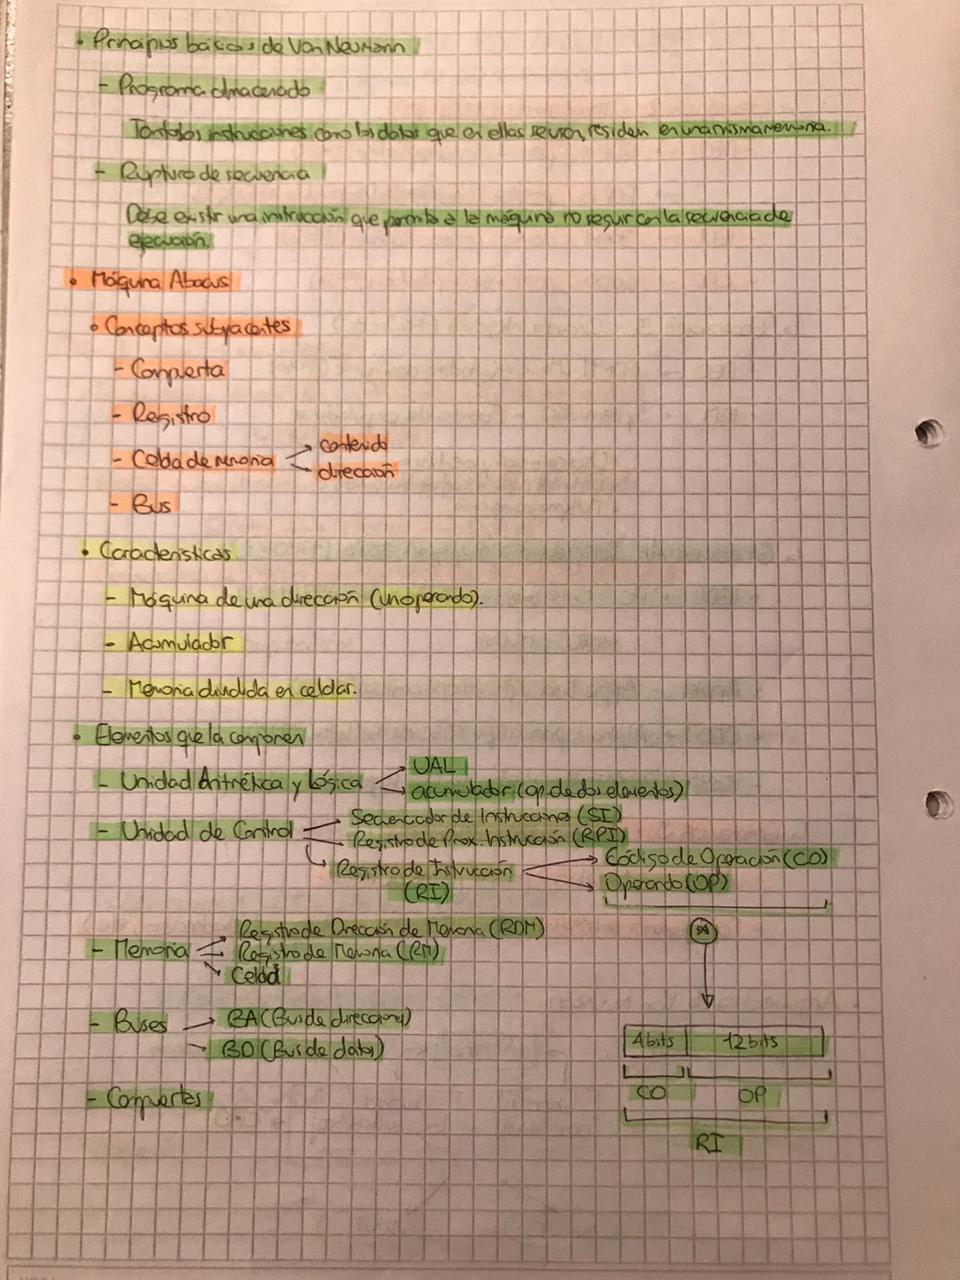 • Principios básicos de Von Neumann
- Programa almacenado
Tanto las instrucciones como los datos que en ellas se usan, residen en una misma memoria.
- Ruptura de secuencia
Debe existir una instrucción que permita a la máquina no seguir con la secuencia de
ejecución.
• Máquina Abacus
• Conceptos subyacentes
- Compuerta
- Registro
- Celda de memoria
contenido
dirección
- Bus
• Características
- Máquina de una dirección (un operando).
- Acumulador
- Memoria dividida en celdas.
• Elementos que la componen
- Unidad Aritmética y Lógica
UAL
acumulador (op. de dos elementos)
- Unidad de Control
Secuenciador de Instrucciones (SI)
Registro de Prox. Instrucción (RPI)
Registro de Instrucción
(RI)
Código de Operación (CO)
Operando (OP)
- Memoria
Registro de Dirección de Memoria (RDM)
Registro de Memoria (RM)
Celda
- Buses
BA (Bus de direcciones)
BD (Bus de datos)
4 bits 12 bits
CO OP
RI
- Compuertas